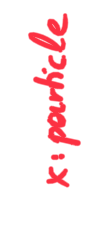 x: particle